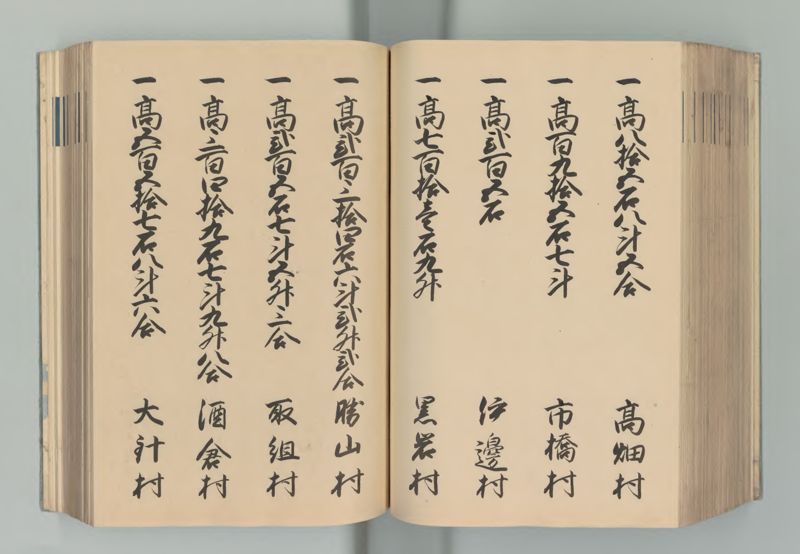 一高八拾五石八斗五合 高畑村
一高百九拾五石七斗 市橋村
一高弐百五石 伊邊村
一高七百拾壱石九升 黒岩村
一高弐百三拾四石六斗弐升弐合 勝山村
一高弐百五石七斗五升三合 取組村
一高三百四拾九石七斗九升八合 酒倉村
一高五百五拾七石八斗六合 大針村